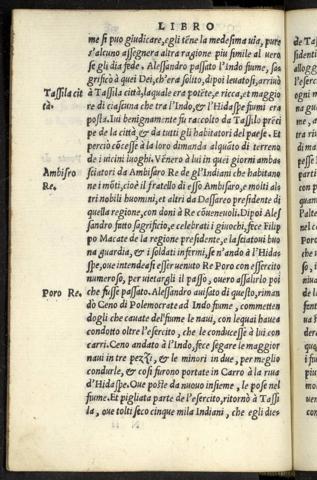 LIBRO
me si puo giudicare, egli tẽne la medesima uia, pure
s'alcuno assegnera altra ragione piu simile al uero
se gli dia fede. Alessandro passato l'Indo fiume, sa=
grificò à quei Dei, ch'era solito, dipoi leuatosi, arriuò
Tassila cit à Tassila città, laquale era potẽte, e ricca, et maggio
tà. re di ciascuna che tra l'Indo, & l'Hidaspe fiumi era
posta. Iui benignamẽte fu raccolto da Tassilo prẽci
pe de la città & da tutti gli habitatori del paese. Et
perciò cõcesse à la loro dimanda alquãto di terreno
de i uicini luoghi. Vẽnero à lui in quei giorni amba=
Ambisro sciatori da Ambisaro Re de gl'Indiani che habitano
Re. ne i mõti, cioè il fratello di esso Ambisaro, e molti al=
tri nobili huomini, et altri da Dassareo presidente di
quella regione, con doni à Re cõueneuoli. Dipoi Ales
sandro fatto sagrificio, e celebrati i giuochi, fece Filip
po Macate de la regione presidente, e lasciatoui buo
na guardia, & i soldati infermi, se n'andò à l'Hida=
spe, oue intendea si esser uenuto Re Poro con essercito
numeroso, per uietargli il passo, ouero assalirlo poi
Poro Re. che fusse passato. Alessandro auisato di questo, riman
dò Ceno di Polemocrate ad Indo fiume, commetten
dogli che cauate del fiume le naui, con lequai hauea
condotto oltre l'esercito, che le conducesse à lui con
carri. Ceno andato à l'Indo, fece segare le maggior
naui in tre pezzi, & le minori in due, per meglio
condurle, & cosi furono portate in Carro à la riua
d'Hidaspe. Oue poste da nuouo insieme, le pose nel
fiume. Et pigliata parte de l'esercito, ritornò à Tassi
la, oue tolti seco cinque mila Indiani, che egli dies=